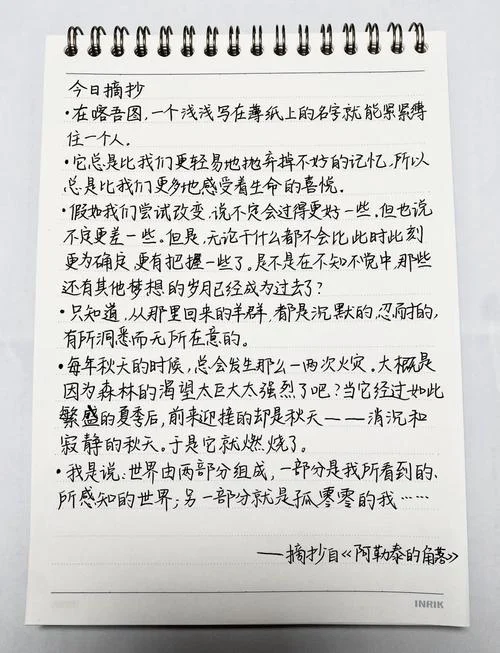 今日摘抄
·在喀吾图,一个浅浅写在薄纸上的名字就能紧紧缚
住一个人。
·它总是比我们更轻易地抛弃掉不好的记忆,所以
总是比我们更多地感受着生命的喜悦。
·假如我们尝试改变,说不定会过得更好一些。但也说
不定更差一些。但是,无论干什么都不会比此时此刻
更为确定,更有把握一些了。是不是在不知不觉中,那些
还有其他梦想的岁月已经成为过去了?
·只知道,从那里回来的羊群,都是沉默的,忍耐的,
有所洞悉而无所在意的。
·每年秋天的时候,总会发生那么一两次火灾。大概是
因为森林的渴望太巨大太强烈了吧?当它经过如此
繁盛的夏季后,前来迎接的却是秋天——消沉和
寂静的秋天。于是它就燃烧了。
·我是说:世界由两部分组成,一部分是我所看到的、
所感知的世界;另一部分就是孤零零的我……
——摘抄自《阿勒泰的角落》
INRIK